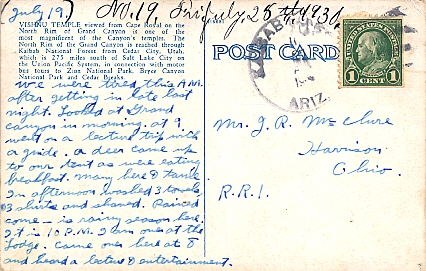 (July 19.) No. 19, Fri. July, 25th, 1930
VISHNU TEMPLE viewed from Cape Royal on the
North Rim of Grand Canyon is one of the
most magnificent of the Canyon's temples. The
North Rim of Grand Canyon is reached through
Kaibab National Forest from Cedar City, Utah,
which is 275 miles south of Salt Lake City on
the Union Pacific System, in connection with motor
bus tours to Zion National Park, Bryce Canyon
National Park and Cedar Breaks.
We were tired this A.M.
after getting in late last
night. Looked at Grand
canyon in morning. at 9
went on a lecture trip with
a guide. a deer came up
to our tent as were eating
breakfast. Many here & tame.
In afternoon washed 3 towels
3 shirts and shaved. Rained
some - is rainy season here.
It is 10 P.M. I am now at the
Lodge. Came over here at 8
and heard a lecture & entertainment.
POST CARD
ARIZ.
UNITED STATES POSTAGE
1 CENT 1
Mr. J. R. McClure
Harrison
Ohio.
R.R.1.